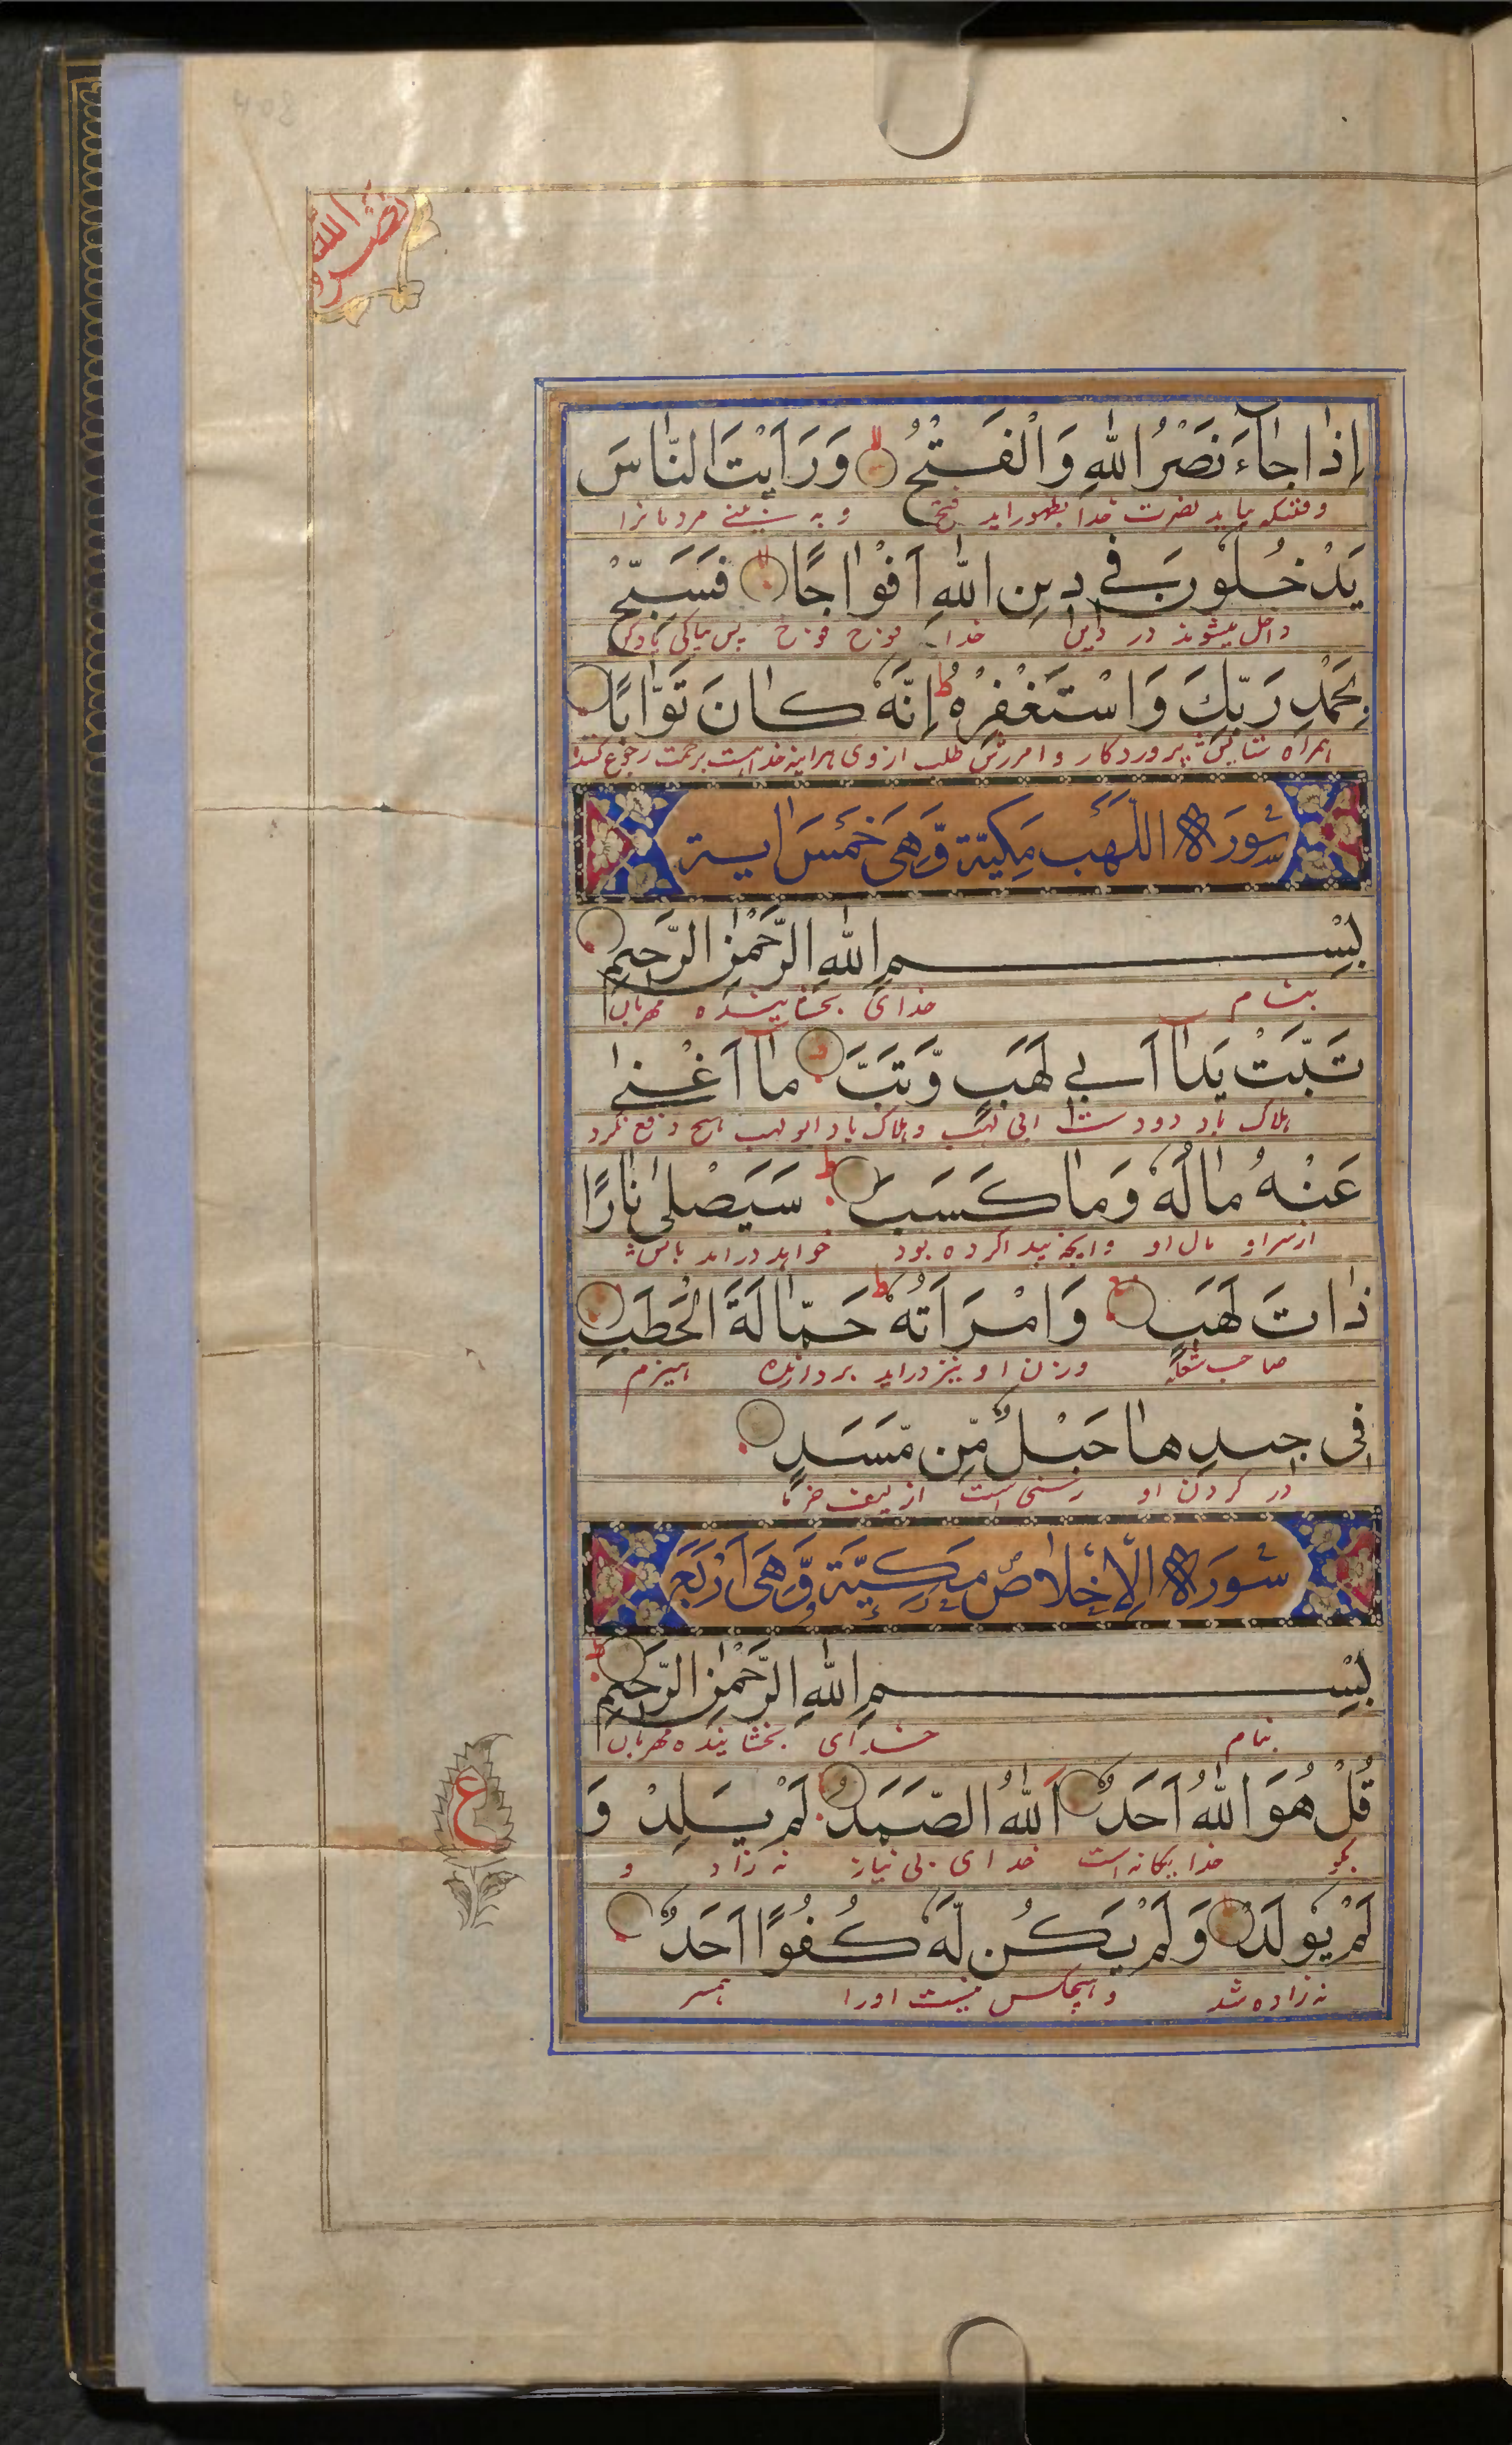 نصر الله
إِذٰا جٰٓاءَ نَصْرُ اللّٰهِ وَالْفَتْحُ وَرَاَيْتَ النّٰاسَ
وقتیکه بیاید نصرت خدا بظهور اید فتح و به بینے مردمانرا
يَدْخُلُونَ في دينِ اللّٰهِ اَفْوٰاجًا فَسَبِّحْ
داخل میشوند در دین خدا فوج فوج پس بپاکی یادکن
بِحَمْدِ رَبِّكَ وَاسْتَغْفِرْهُ اِنَّهُ كٰانَ تَوّٰابًا
همراه ستایش پروردکار و امرزش طلب ازوی هراینه خدا هست برحمت رجوع کننده
سُورَة اللَّهَب مَكِّيَّة وَّهِىَ خَمْسَ اٰية
بِسْمِ اللّٰهِ الرَّحْمٰنِ الرَّحيمِ
خدای بخشاینده مهربان
تَبَّتْ يَدٰٓا اَبي لَهَبٍ وَّتَبَّ مٰٓا اَغْنىٰ
هلاک باد دو دست ابی لهب و هلاک باد ابو لهب هیچ دفع نکرد
عَنْهُ مٰالُهُ وَمٰا كَسَبَ سَيَصْلىٰ نٰارًا
ازسر او مال او وانچه پیدا کرده بود خواهد درامد باتش
ذٰاتَ لَهَبٍ وَامْرَاَتُهُ حَمّٰالَةَ الْحَطَبِ
صاحب شعله وزن او نیز دراید بردارنده هیزم
في جيدِهٰا حَبْلٌ مِّن مَّسَدٍ
در کردن او رسنی است از لیف خرما
سُورَة الْاِخْلاٰص مَكِّيَّة وَّهِىَ اَرْبَعَ
بِسْمِ اللّٰهِ الرَّحْمٰنِ الرَّحيمِ
بنام خدای بخشاینده مهربان
قُلْ هُوَ اللّٰهُ اَحَدٌ اَللّٰهُ الصَّمَدُ لَمْ يَلِدْ وَ
بکو خدا یکانه است خدای بی نیاز نه زاد و
ع
لَمْ يُولَدْ وَلَمْ يَكُن لَّهُ كُفُوًا اَحَدٌ
نه زاده شد و هیچکس نیست اورا همسر